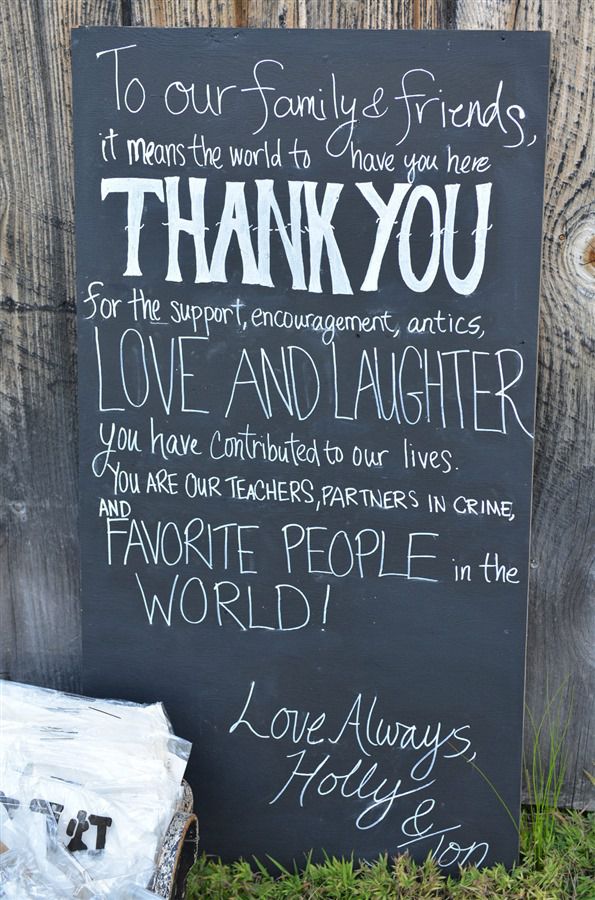 To our family & friends,
it means the world to have you here
THANK YOU
for the support, encouragement, antics,
LOVE AND LAUGHTER
you have contributed to our lives.
YOU ARE OUR TEACHERS, PARTNERS IN CRIME,
AND
FAVORITE PEOPLE in the
WORLD!
Love Always,
Holly
&